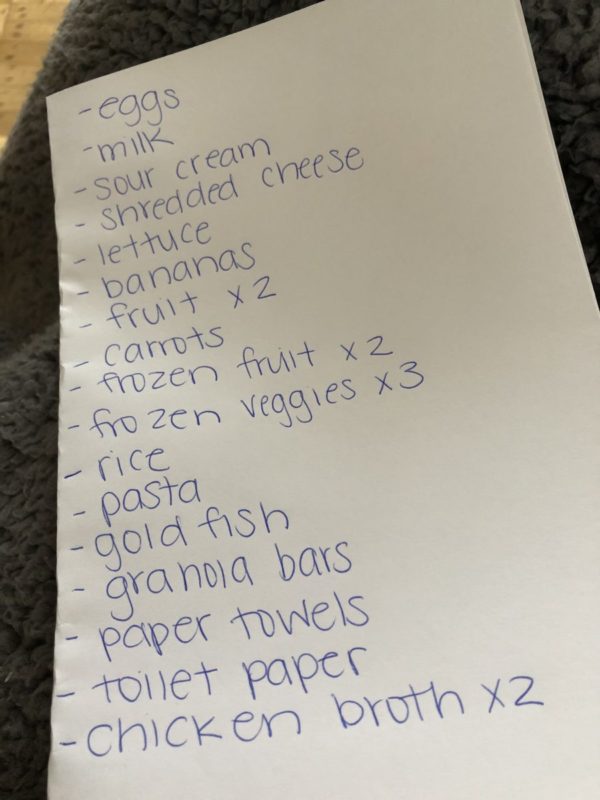 - eggs
- milk
- sour cream
- shredded cheese
- lettuce
- bananas
- fruit x2
- carrots
- frozen fruit x2
- frozen veggies x3
- rice
- pasta
- gold fish
- granola bars
- paper towels
- toilet paper
- chicken broth x2